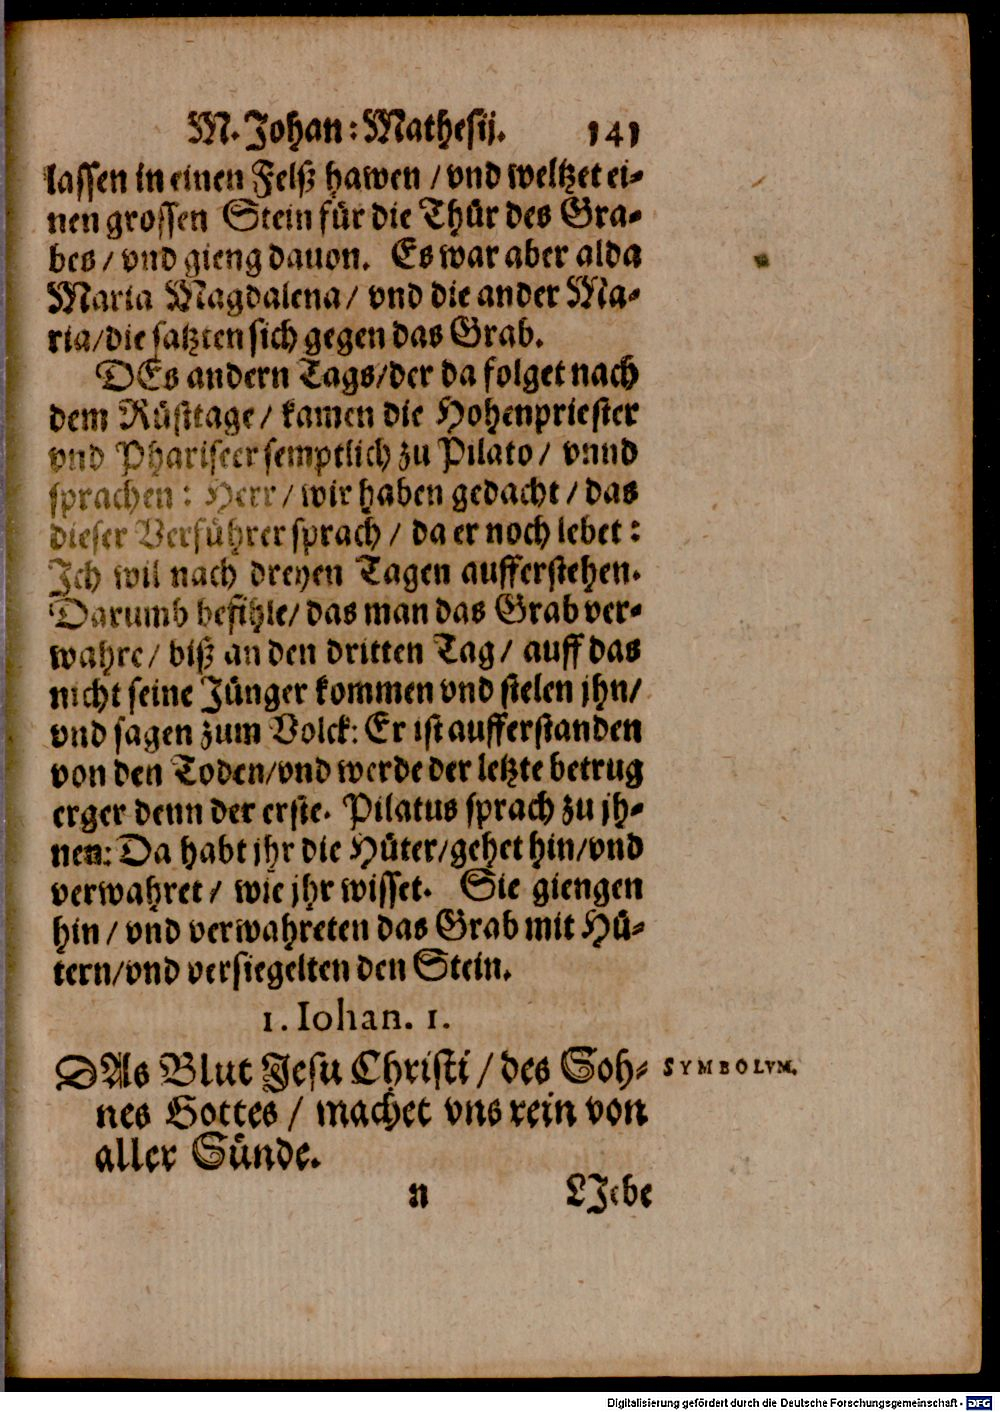 M. Johan: Mathesij. 141
lassen in einen Felß hawen / vnd weltzet ei-
nen grossen Stein für die Thür des Gra-
bes / vnd gieng dauon. Es war aber alda
Maria Magdalena / vnd die ander Ma-
ria / die satzten sich gegen das Grab.
DEs andern Tags / der da folget nach
dem Rüsttage / kamen die Hohenpriester
vnd Phariseer semptlich zu Pilato / vnnd
sprachen: Herr / wir haben gedacht / das
dieser Verführer sprach / da er noch lebet:
Ich wil nach dreyen Tagen aufferstehen.
Darumb befihle / das man das Grab ver-
wahre / biß an den dritten Tag / auff das
nicht seine Jünger kommen vnd stelen jhn /
vnd sagen zum Volck: Er ist aufferstanden
von den Toden / vnd werde der letzte betrug
erger denn der erste. Pilatus sprach zu jh-
nen: Da habt jhr die Hüter / gehet hin / vnd
verwahret / wie jhr wisset. Sie giengen
hin / vnd verwahreten das Grab mit Hü-
tern / vnd versiegelten den Stein.
1. Iohan. 1.
DAs Blut Jesu Christi / des Soh-
nes Gottes / machet vns rein von
aller Sünde.
SYMBOLVM.
n LJebe
Digitalisierung gefördert durch die Deutsche Forschungsgemeinschaft - DFG